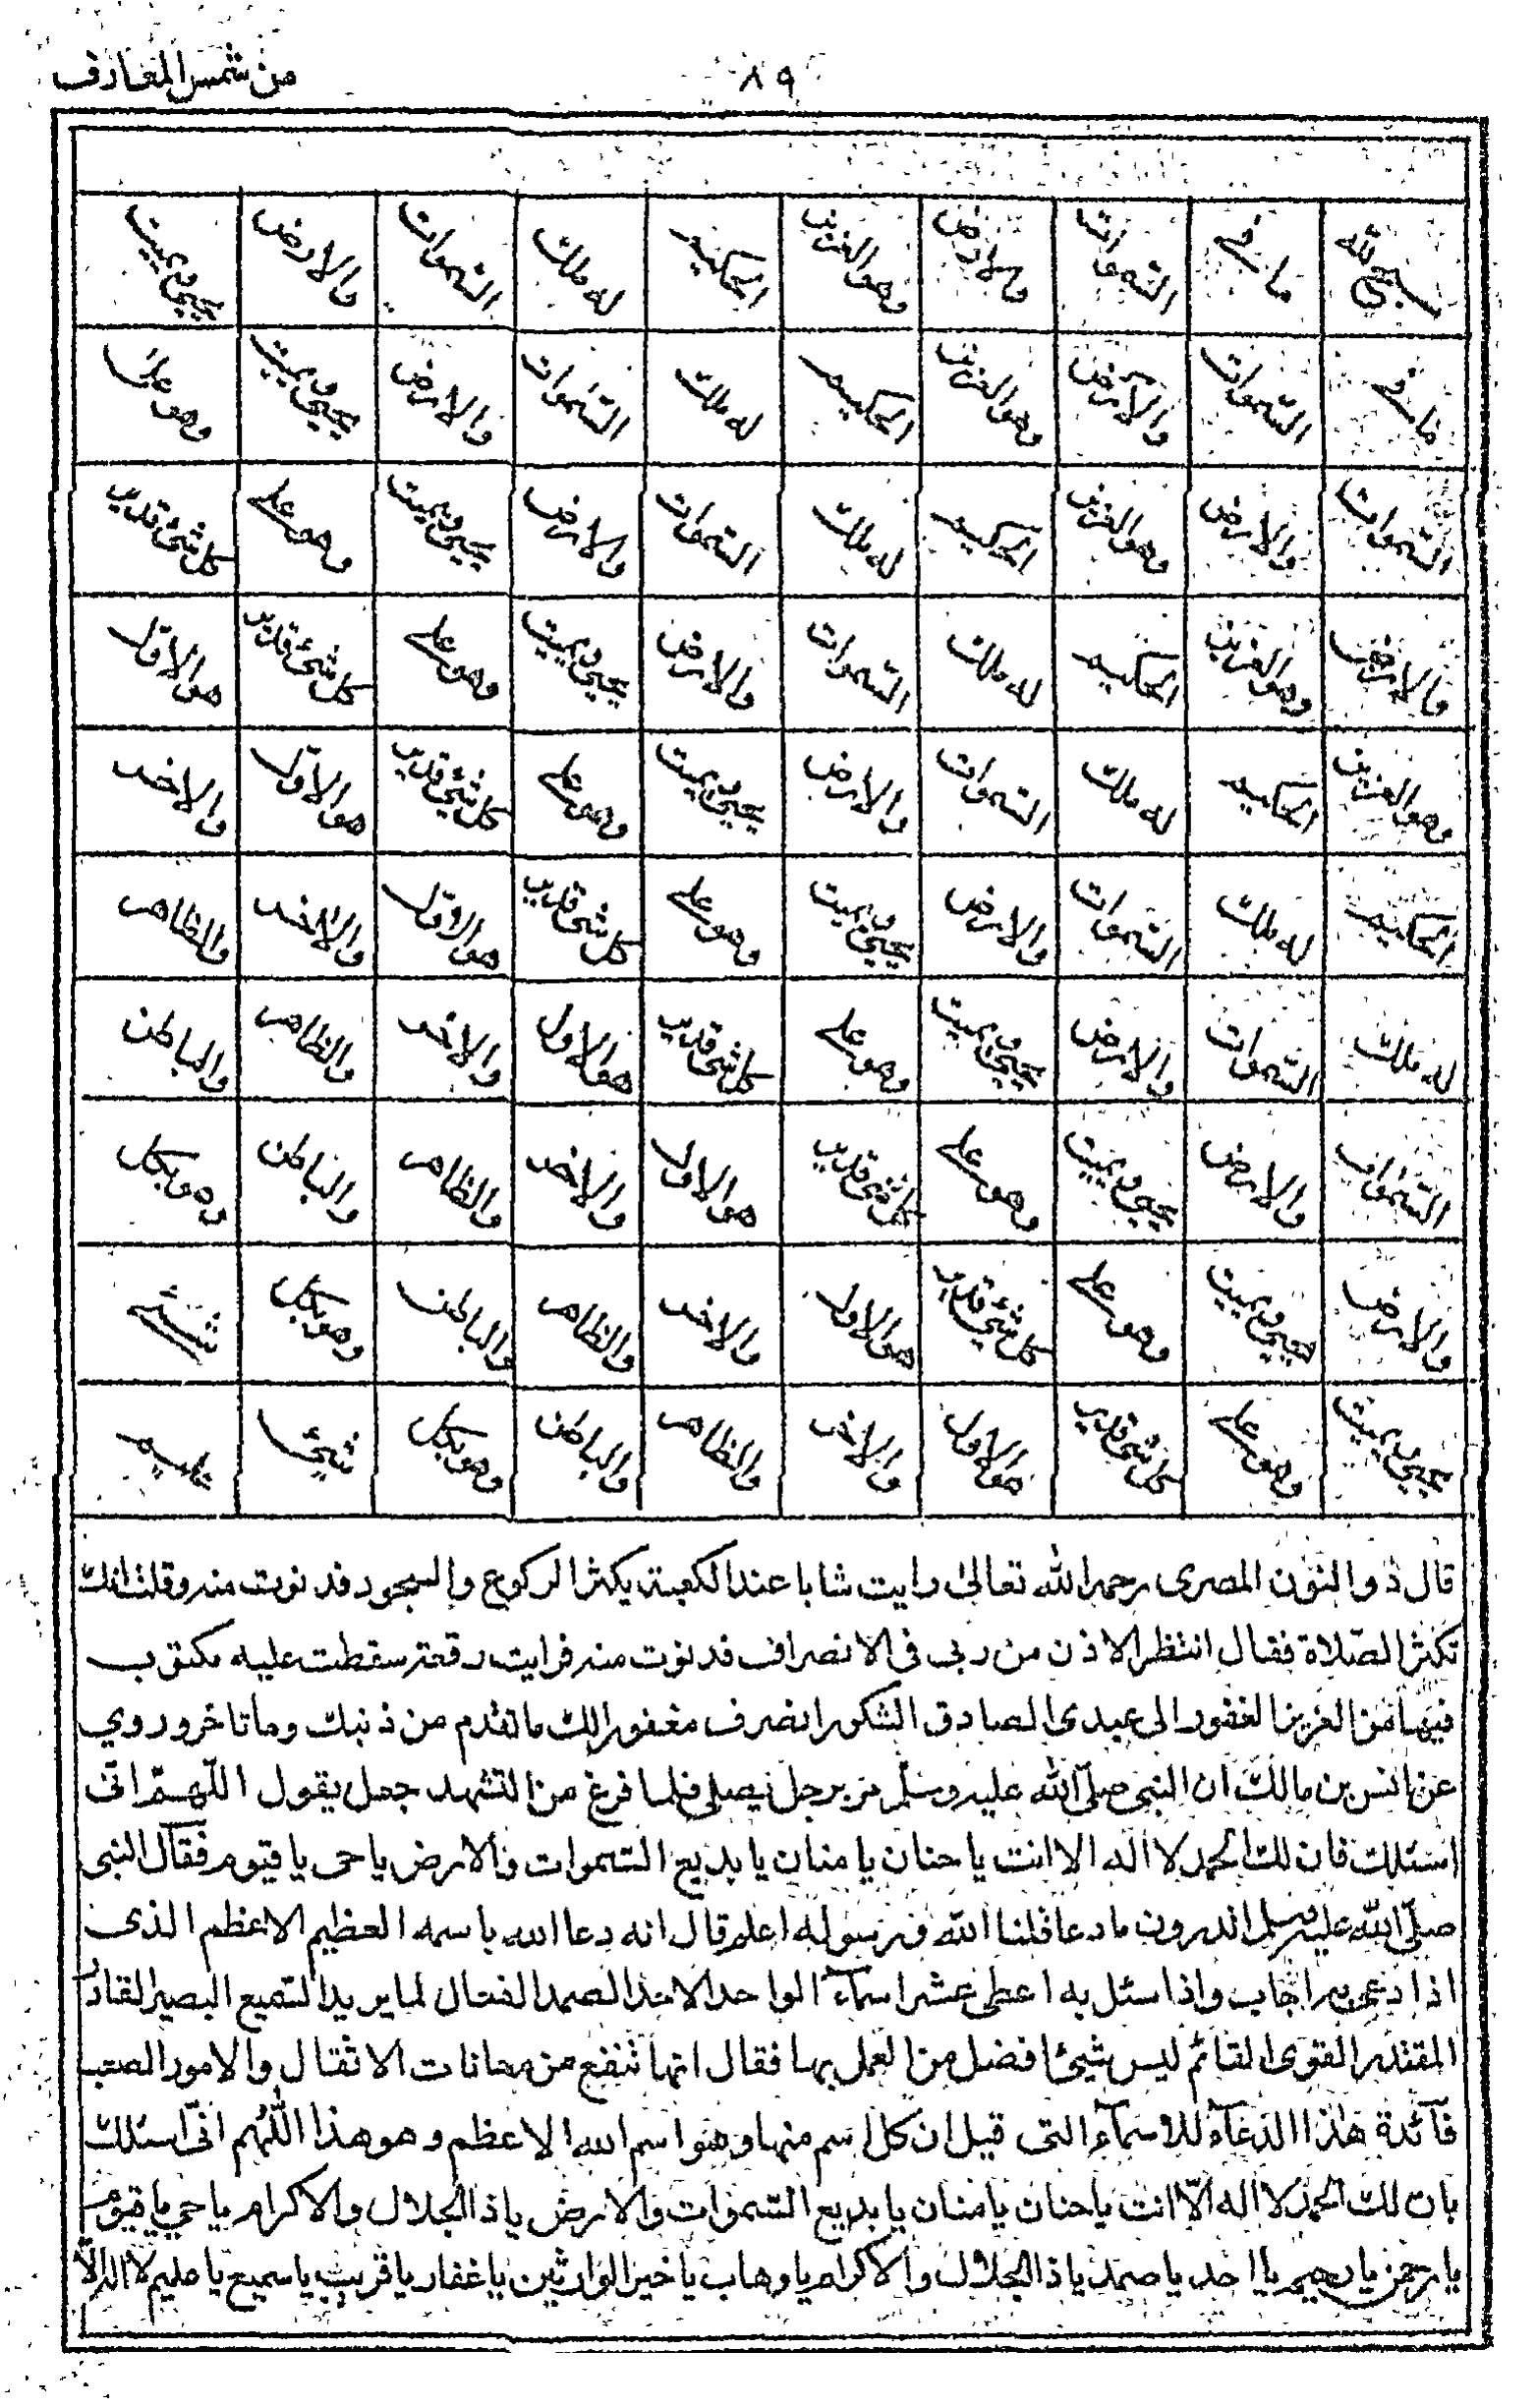 من شمس المعارف
٨٩
سبح لله ما في السموات والارض وهو العزيز الحكيم له ملك السموات والارض يحيى ويميت
ما في السموات والارض وهو العزيز الحكيم له ملك السموات والارض يحيى ويميت وهو على
السموات والارض وهو العزيز الحكيم له ملك السموات والارض يحيى ويميت وهو على كل شئ قدير
والارض وهو العزيز الحكيم له ملك السموات والارض يحيى ويميت وهو على كل شئ قدير هو الاول
وهو العزيز الحكيم له ملك السموات والارض يحيى ويميت وهو على كل شئ قدير هو الاول والاخر
الحكيم له ملك السموات والارض يحيى ويميت وهو على كل شئ قدير هو الاول والاخر والظاهر
له ملك السموات والارض يحيى ويميت وهو على كل شئ قدير هو الاول والاخر والظاهر والباطن
السموات والارض يحيى ويميت وهو على كل شئ قدير هو الاول والاخر والظاهر والباطن وهو بكل
والارض يحيى ويميت وهو على كل شئ قدير هو الاول والاخر والظاهر والباطن وهو بكل شئ
يحيى ويميت وهو على كل شئ قدير هو الاول والاخر والظاهر والباطن وهو بكل شئ عليم
قال ذو النون المصرى رحمه الله تعالى رايت شابا عند الكعبة يكثر الركوع والسجود فدنوت منه وقلت انك
تكثر الصلاة فقال انتظر الاذن من ربى فى الانصراف فدنوت منه فرايت رقعة سقطت عليه مكتوب
فيها من العزيز الغفور الى عبدى الصادق الشكور انصرف مغفورا لك ما تقدم من ذنبك وما تاخر وروي
عن انس بن مالك ان النبى صلى الله عليه وسلم مر برجل يصلى فلما فرغ من التشهد جعل يقول اللهم انى
اسئلك فان لك الحمد لا اله الا انت يا حنان يا منان يا بديع السموات والارض يا حى يا قيوم فقال النبى
صلى الله عليه وسلم اتدرون ما دعا قلنا الله ورسوله اعلم قال انه دعا الله باسمه العظيم الاعظم الذى
اذا دعى به اجاب واذا سئل به اعطى عشر اسماء الواحد الاحد الصمد الفعال لما يريد السميع البصير القادر
المقتدر القوى القائم ليس شيئ افضل من العمل بها فقال انها تنفع من معانات الاثقال والامور الصعب
فآئدة هذا الدعاء للاسماء التى قيل ان كل اسم منها وهو اسم الله الاعظم وهو هذا اللهم انى اسئلك
بان لك الحمد لا اله الا انت يا حنان يا منان يا بديع السموات والارض يا ذا الجلال والاكرام يا حي يا قيوم
يا رحمن يا رحيم يا احد يا صمد يا ذا الجلال والاكرام يا وهاب يا خير الوارثين يا غفار يا قريب يا سميع يا عليم لا اله الا